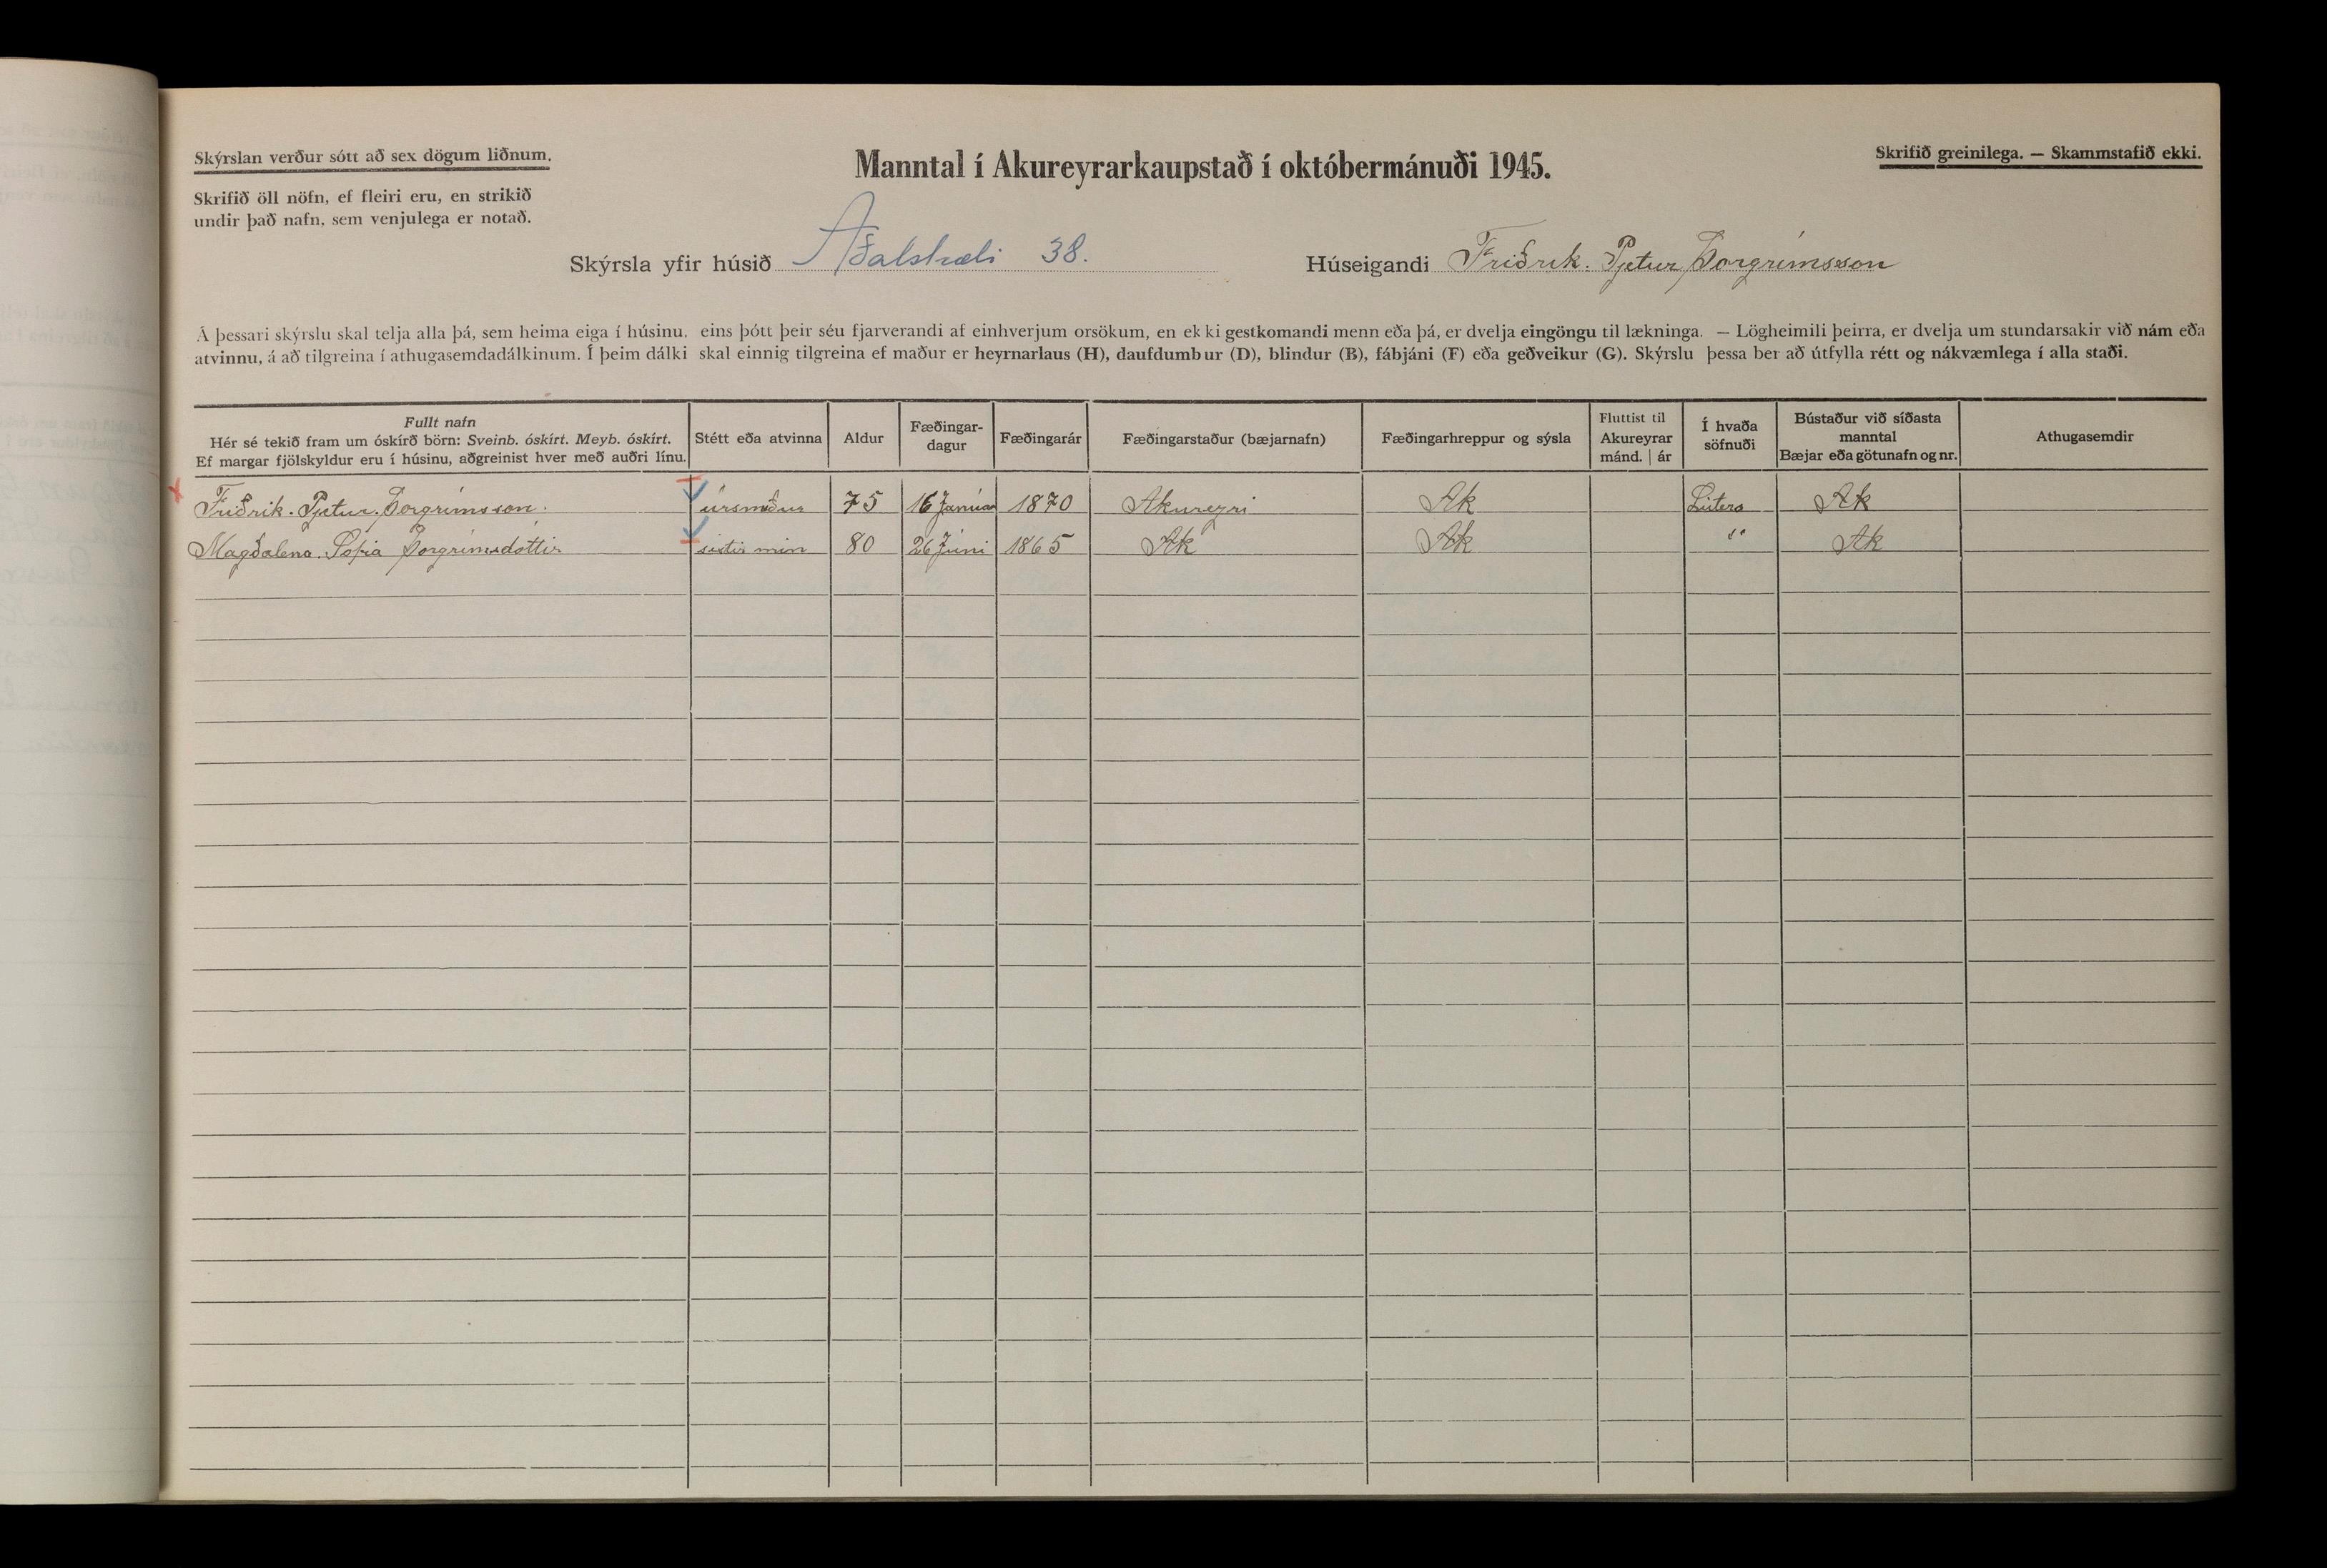 Skýrslan verður sótt að sex dögum liðnum.
Skrifið öll nöfn, ef fleiri eru, en strikið
undir það nafn, sem venjulega er notað.
Manntal í Akureyrarkaupstað í októbermánuði 1945.
Skrifið greinilega. — Skammstafið ekki.
Skýrsla yfir húsið Aðalstræti 38.
Húseigandi Friðrik. Pjetur Þorgrímsson
Á þessari skýrslu skal telja alla þá, sem heima eiga í húsinu, eins þótt þeir séu fjarverandi af einhverjum orsökum, en ekki gestkomandi menn eða þá, er dvelja eingöngu til lækninga. — Lögheimili þeirra, er dvelja um stundarsakir við nám eða
atvinnu, á að tilgreina í athugasemdadálkinum. Í þeim dálki skal einnig tilgreina ef maður er heyrnarlaus (H), daufdumbur (D), blindur (B), fábjáni (F) eða geðveikur (G). Skýrslu þessa ber að útfylla rétt og nákvæmlega í alla staði.
Fullt nafn
Hér sé tekið fram um óskírð börn: Sveinb. óskírt. Meyb. óskírt.
Ef margar fjölskyldur eru í húsinu, aðgreinist hver með auðri línu.
Stétt eða atvinna
Aldur
Fæðingar-
dagur
Fæðingarár
Fæðingarstaður (bæjarnafn)
Fæðingarhreppur og sýsla
Fluttist til
Akureyrar
mánd. | ár
Í hvaða
söfnuði
Bústaður við síðasta
manntal
Bæjar eða götunafn og nr.
Athugasemdir
Friðrik. Pjetur. Þorgrímsson. úrsmiður 75 16 Janúar 1870 Akureyri Ak Lúters Ak
Magðalena. Sofia Þorgrímsdóttir sistir min 80 26 Júni 1865 Ak Ak " Ak